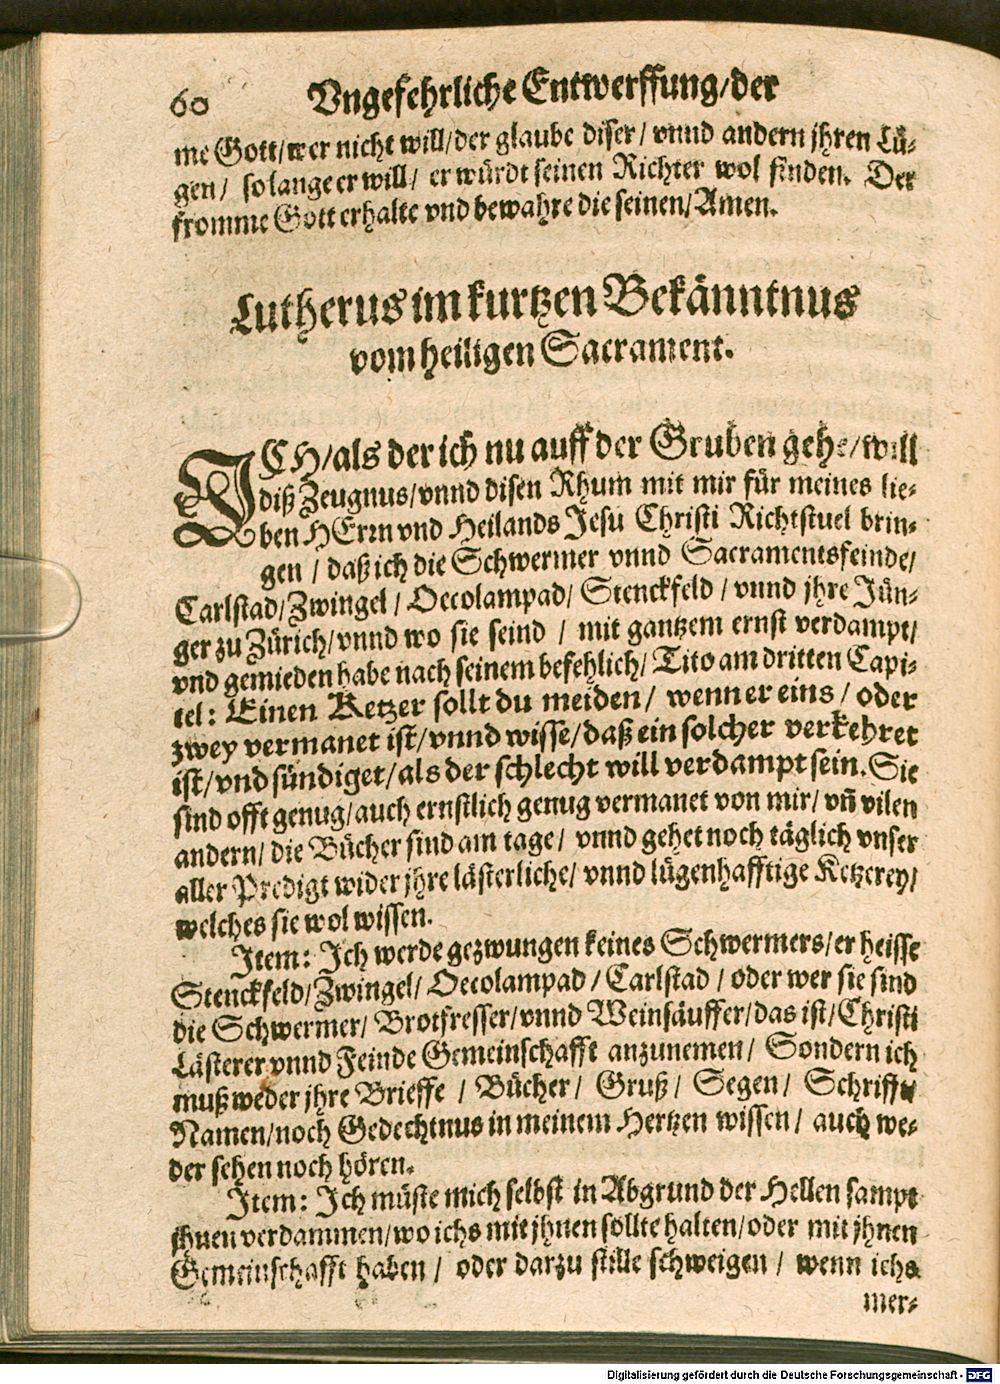 60 Vngefehrliche Entwerffung/der
me Gott/wer nicht will/der glaube diser/ vnnd andern jhren Lü-
gen/ so lange er will/ er würdt seinen Richter wol finden. Der
fromme Gott erhalte vnd bewahre die seinen/Amen.
Lutherus im kurtzen Bekänntnus
vom heiligen Sacrament.
ICH/als der ich nu auff der Gruben gehe/will
diß Zeugnus/vnnd disen Rhum mit mir für meines lie-
ben HErrn vnd Heilands Jesu Christi Richtstuel brin-
gen / daß ich die Schwermer vnnd Sacramentsfeinde/
Carlstad/Zwingel / Oecolampad/ Stenckfeld / vnnd jhre Jün-
ger zu Zürich/vnnd wo sie seind / mit gantzem ernst verdampt/
vnd gemieden habe nach seinem befehlich/ Tito am dritten Capi-
tel: Einen Ketzer sollt du meiden/ wenn er eins / oder
zwey vermanet ist/vnnd wisse/daß ein solcher verkehret
ist/vnd sündiget/als der schlecht will verdampt sein. Sie
sind offt genug/auch ernstlich genug vermanet von mir/ vñ vilen
andern/ die Bücher sind am tage/ vnnd gehet noch täglich vnser
aller Predigt wider jhre lästerliche/ vnnd lügenhafftige Ketzerey/
welches sie wol wissen.
Item: Ich werde gezwungen keines Schwermers/er heisse
Stenckfeld/Zwingel/ Oecolampad / Carlstad / oder wer sie sind
die Schwermer/ Brotfresser/vnnd Weinsäuffer/das ist/Christi
Lästerer vnnd Feinde Gemeinschafft anzunemen/ Sondern ich
muß weder jhre Brieffe / Bücher/ Gruß/ Segen/ Schrifft/
Namen/noch Gedechtnus in meinem Hertzen wissen/ auch we-
der sehen noch hören.
Item: Ich müste mich selbst in Abgrund der Hellen sampt
jhnen verdammen/wo ichs mit jhnen sollte halten/oder mit jhnen
Gemeinschafft haben / oder darzu stille schweigen / wenn ichs
mer-
Digitalisierung gefördert durch die Deutsche Forschungsgemeinschaft - DFG